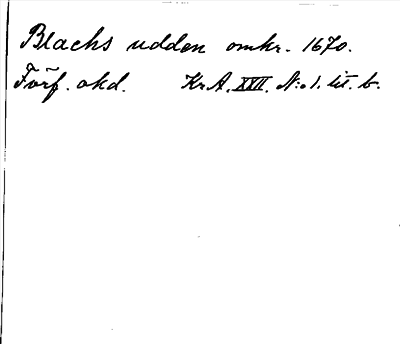 Blachs udden omkr. 1670.
Förf. okd. Kr A. XXII. N:o 1. lit. b.